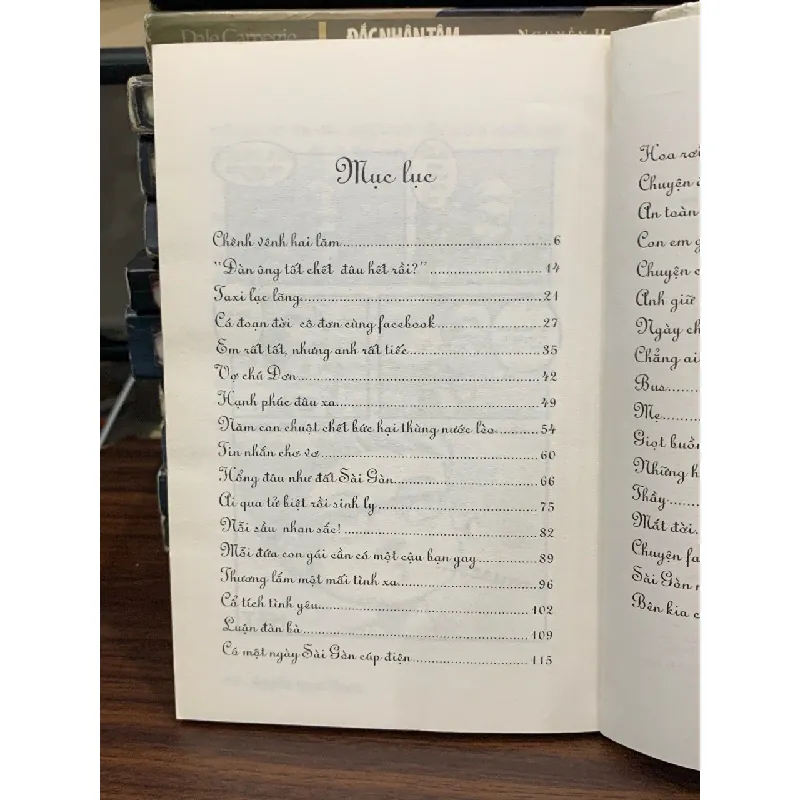 Dale Carnegie
ĐẮC NHÂN TÂM
Mục lục
Chênh vênh hai lăm 6
"Đàn ông tốt chết đâu hết rồi?" 14
Taxi lạc lãng 21
Có đoạn đời cô đơn cùng facebook 27
Em rất tốt, nhưng anh rất tiếc 35
Vợ chú Đơn 42
Hạnh phúc đâu xa 49
Năm con chuột chết bức hại thùng nước lèo 54
Tin nhắn chơ vơ 60
Hổng đâu như đất Sài Gòn 66
Ai qua tử biệt rồi sinh ly 75
Nỗi sầu nhan sắc! 82
Mỗi đứa con gái cần có một cậu bạn gay 89
Thương lắm một mối tình xa 96
Cổ tích tình yêu 102
Luận đàn bà 109
Có một ngày Sài Gòn cúp điện 115
Hoa rơi
Chuyện
An toàn
Con em
Chuyện
Anh giữ
Ngày
Chẳng ai
Bus
Mẹ
Giọt buồn
Những
Thầy
Mắt đời
Chuyện
Sài Gòn
Bên kia